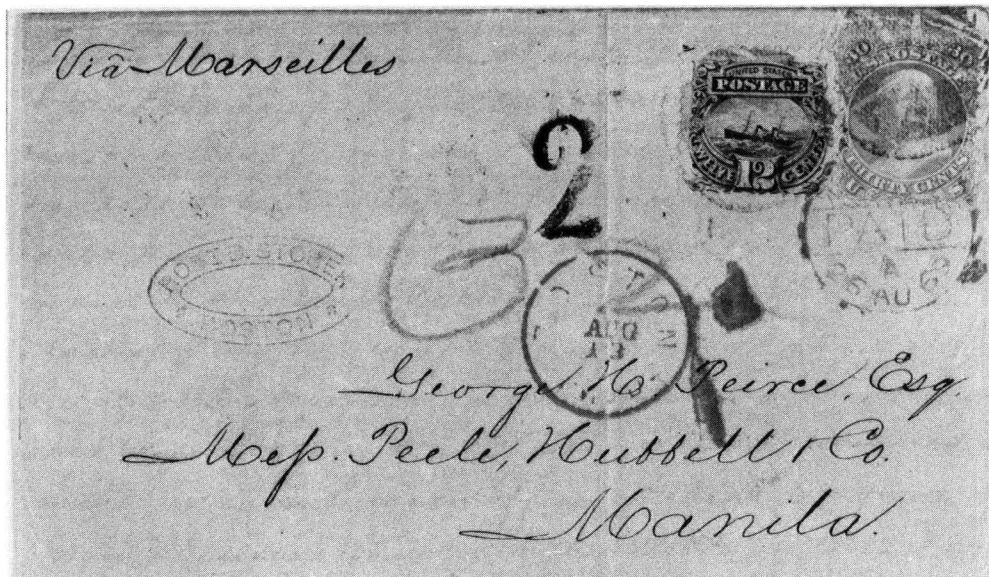 Via Marseilles
UNITED STATES
POSTAGE
TWELVE 12 CENTS
30 30
THIRTY CENTS
2
PAID
26 AU 69
ROBT B. STORER
BOSTON
BOSTON
AUG
13
George H. Peirce, Esq.
Mess. Peele, Hubbell & Co.
Manila.